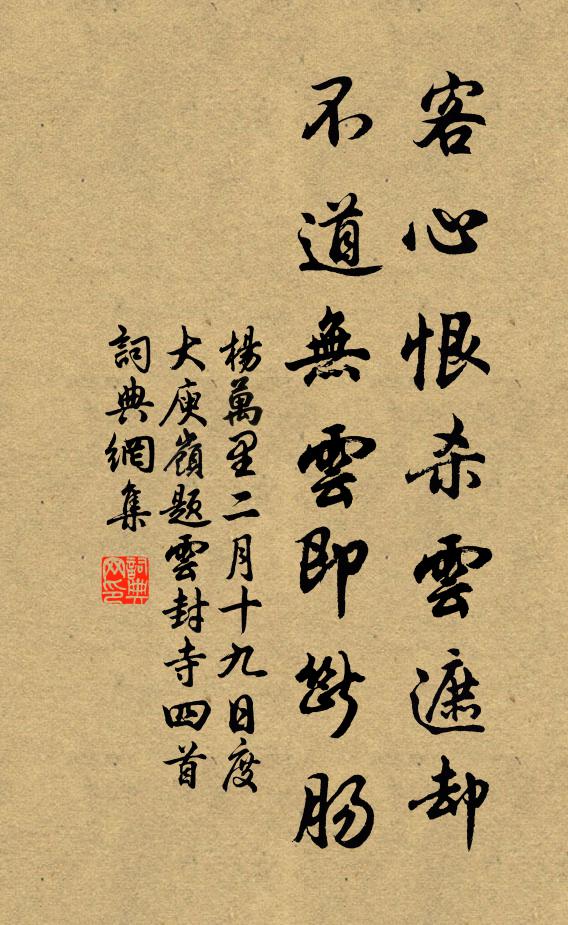 客心恨杀雲遮却
不道無雲即斷腸
楊萬里二月十九日度
大庾嶺题雲封寺四首
詞典網集
詞典網印